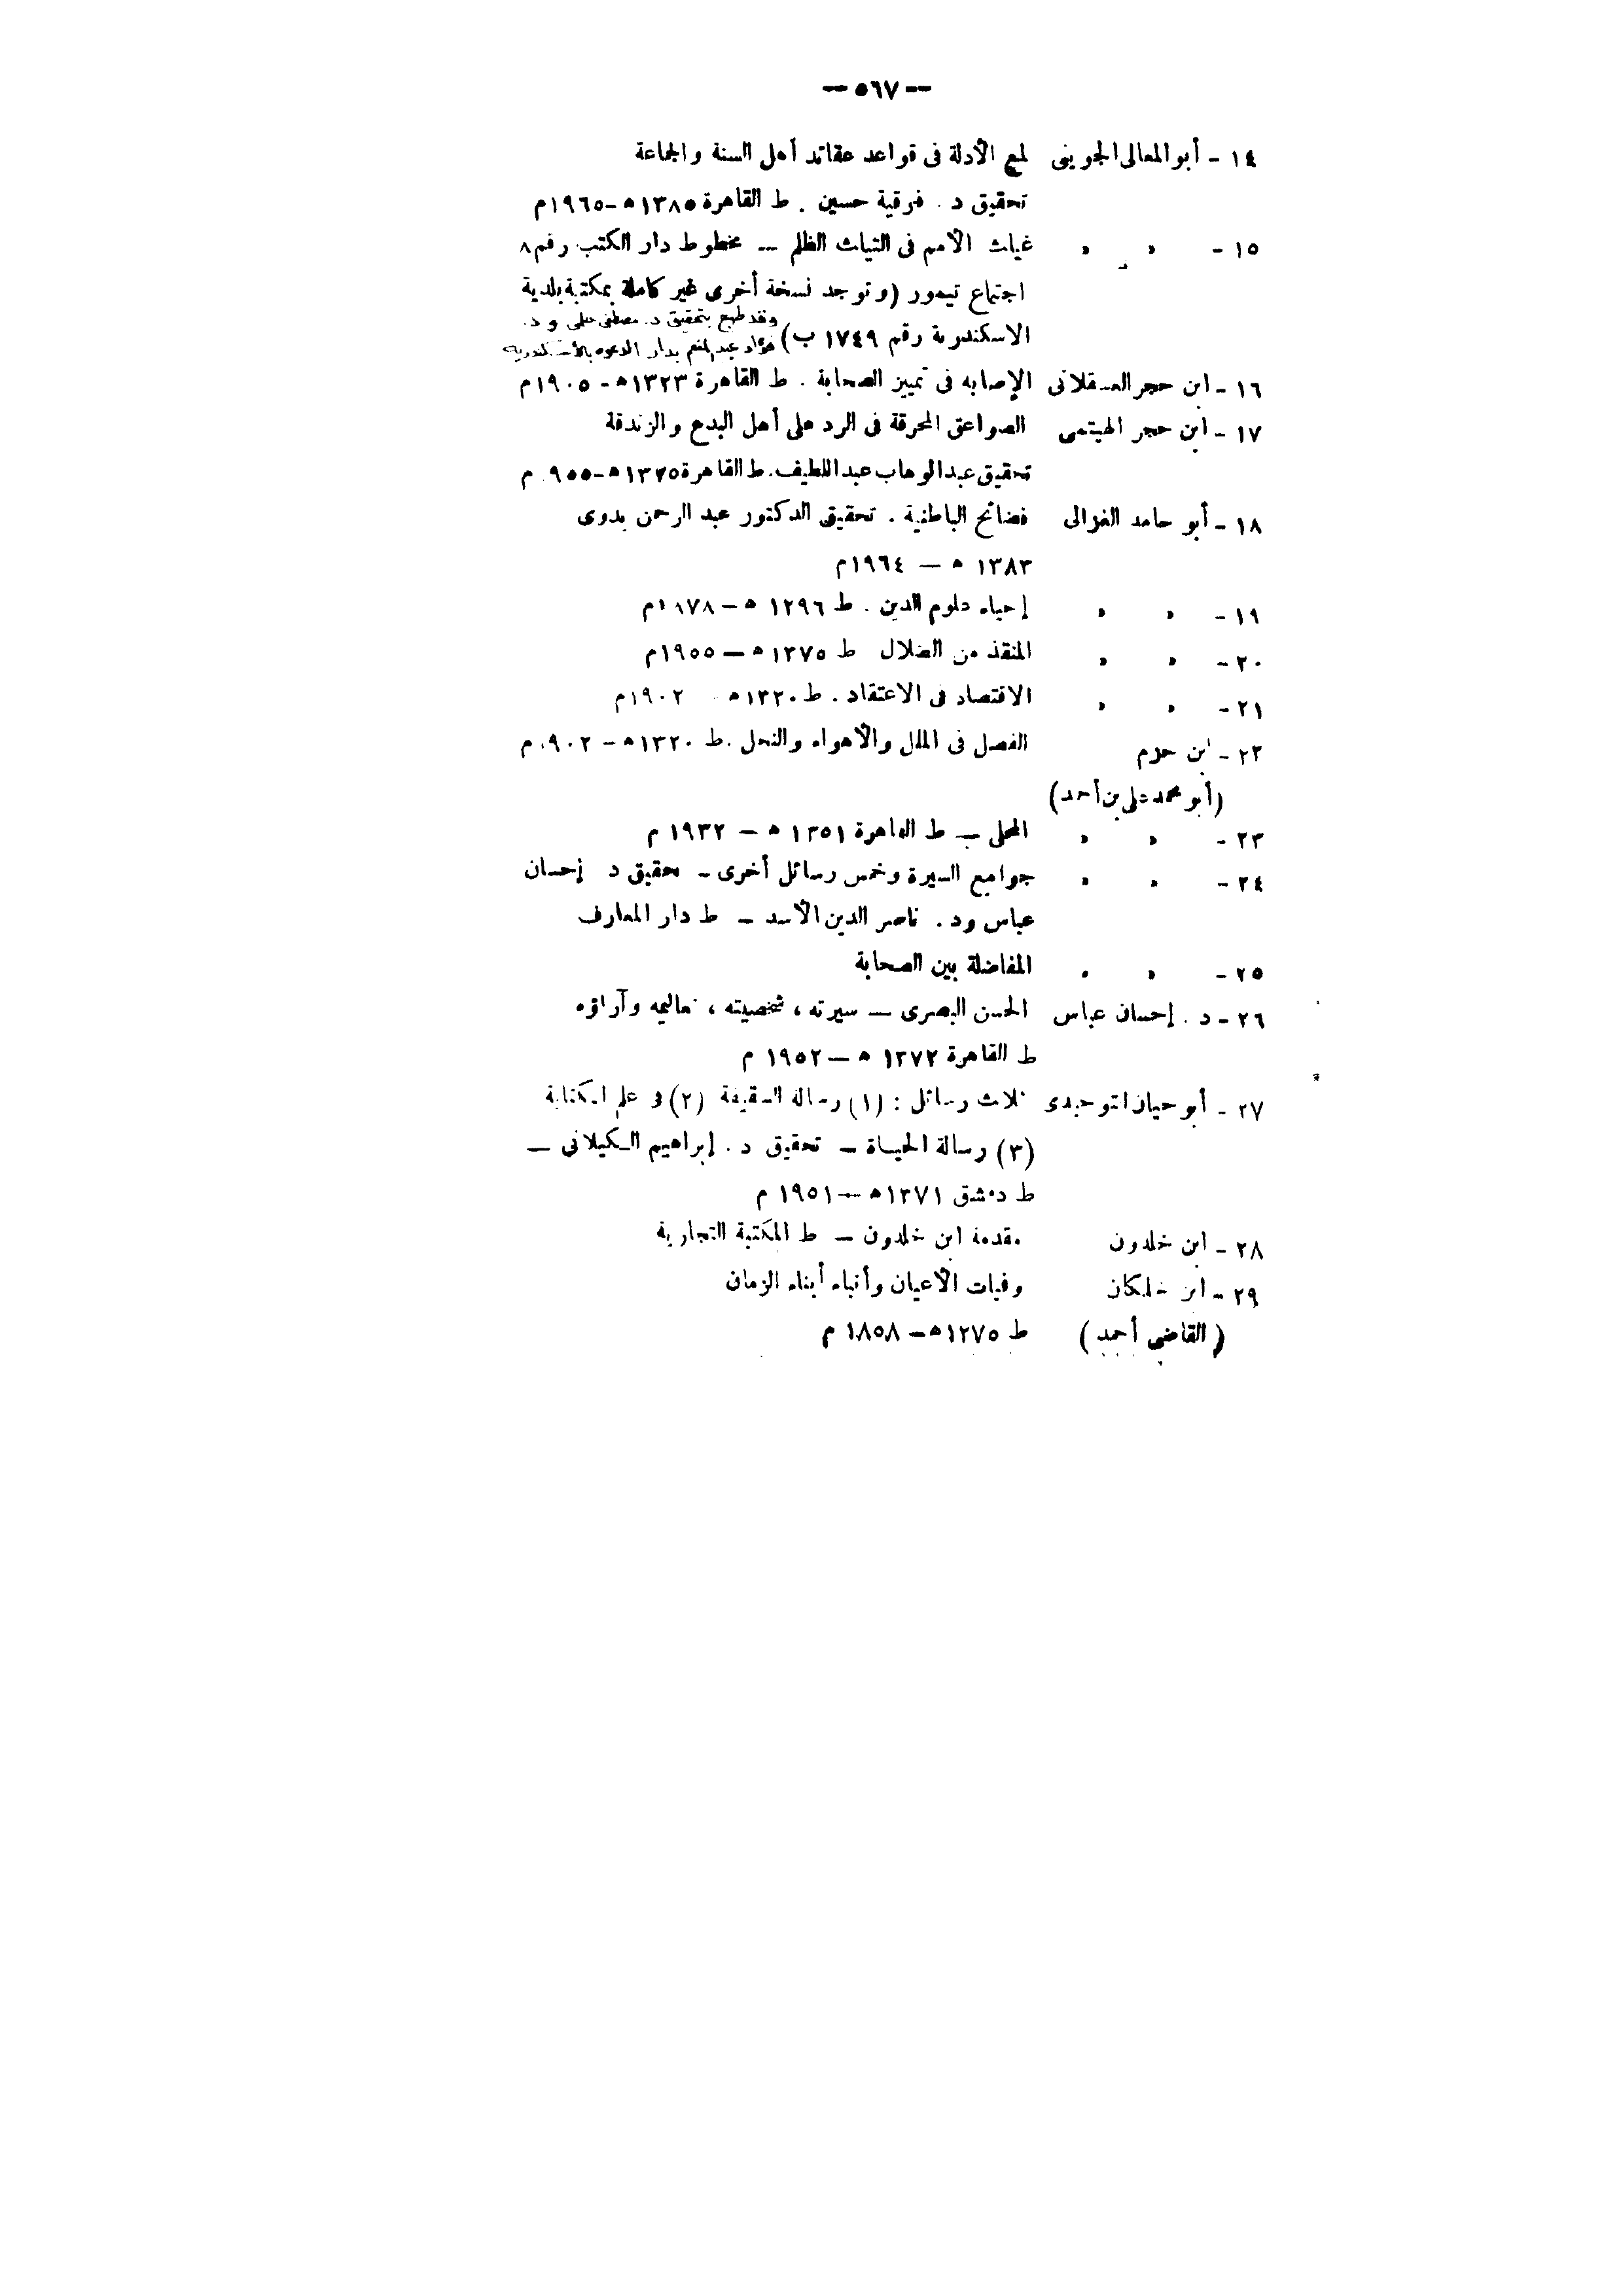 — ٥٦٧ —
١٤ - أبو المعالى الجوينى لمع الأدلة فى قواعد عقائد أهل السنة والجماعة
تحقيق د . فوقية حسين . ط القاهرة ١٣٨٥ه-١٩٦٥م
١٥ - » » غياث الأمم فى التياث الظلم — مخطوط دار الكتب رقم ٨
اجتماع تيمور (وتوجد نسخة أخرى غير كاملة بمكتبة بلدية
الاسكندرية رقم ١٧٤٩ ب)
وقد طبع بتحقيق د. مصطفى حلمى و د.
فؤاد عبد المنعم بدار الدعوة بالاسكندرية
١٦ - ابن حجر العسقلانى الإصابه فى تمييز الصحابة . ط القاهرة ١٣٢٣ه - ١٩٠٥م
١٧ - ابن حجر الهيتمى الصواعق المحرقة فى الرد على أهل البدع والزندقة
تحقيق عبد الوهاب عبد اللطيف. ط القاهرة ١٣٧٥ه-١٩٥٥م
١٨ - أبو حامد الغزالى فضائح الباطنية . تحقيق الدكتور عبد الرحمن بدوى
١٣٨٣ ه — ١٩٦٤م
١٩ - » » إحياء علوم الدين . ط ١٢٩٦ ه — ١٨٧٨م
٢٠ - » » المنقذ من الضلال ط ١٣٧٥ ه — ١٩٥٥م
٢١ - » » الاقتصاد فى الاعتقاد . ط ١٣٢٠ه ١٩٠٢م
٢٢ - ابن حزم الفصل فى الملل والأهواء والنحل . ط ١٣٢٠ه — ١٩٠٢م
(أبو محمد على بن أحمد)
٢٣ - » » المحلى — ط القاهرة ١٣٥١ ه — ١٩٣٢ م
٢٤ - » » جوامع السيرة وخمس رسائل أخرى — تحقيق د إحسان
عباس ود . ناصر الدين الأسد — ط دار المعارف
٢٥ - » » المفاضلة بين الصحابة
٢٦ - د . إحسان عباس الحسن البصرى — سيرته ، شخصيته ، تعاليمه وآراؤه
ط القاهرة ١٣٧٢ ه — ١٩٥٢ م
٢٧ - أبو حيان التوحيدى ثلاث رسائل : (١) رسالة السقيفة (٢) فى علم الكتابة
(٣) رسالة الحياة — تحقيق د . إبراهيم الكيلانى —
ط دمشق ١٣٧١ه — ١٩٥١ م
٢٨ - ابن خلدون مقدمة ابن خلدون — ط المكتبة التجارية
٢٩ - ابن خلكان وفيات الأعيان وأنباء أبناء الزمان
(القاضى أحمد) ط ١٢٧٥ه — ١٨٥٨ م